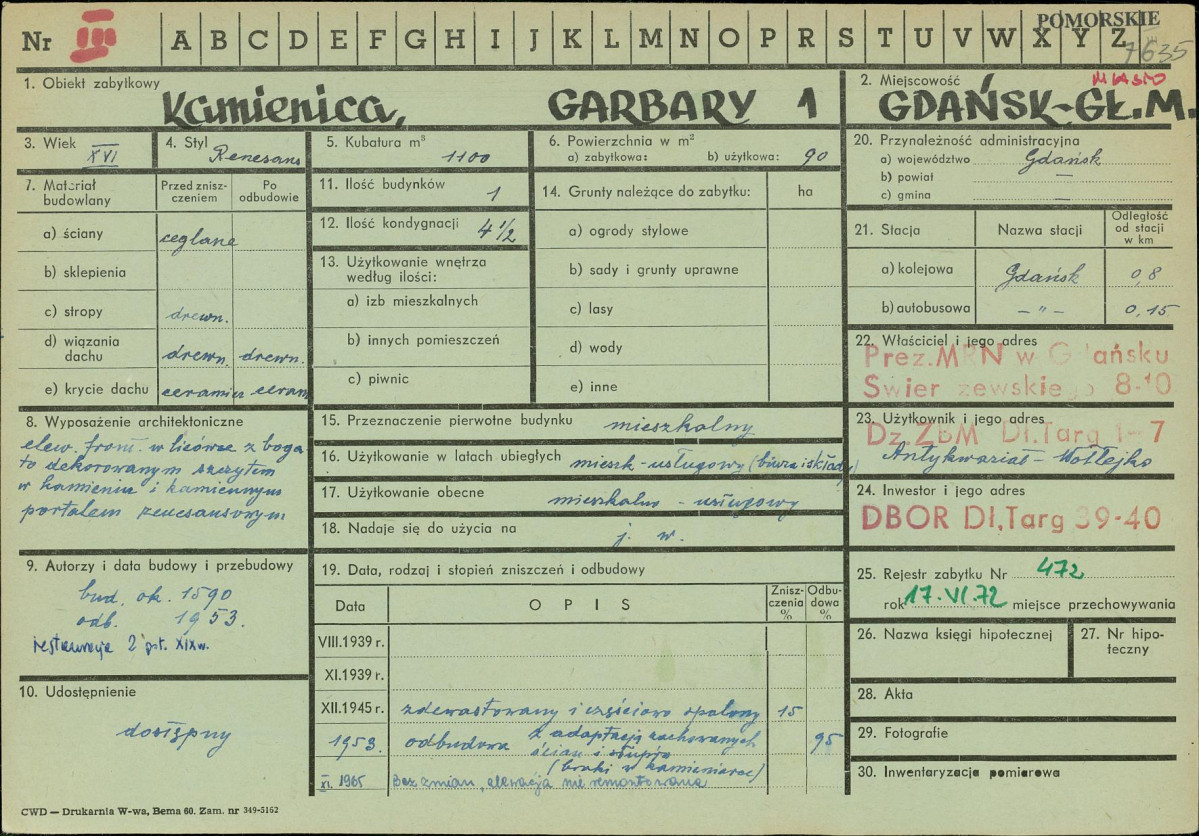 Nr III A B C D E F G H I J K L M N O P R S T U V W X Y Z
POMORSKIE
7635
1. Obiekt zabytkowy
Kamienica, GARBARY 1
2. Miejscowość
MIASTO
GDAŃSK-GŁ.M.
3. Wiek
XVI
4. Styl
Renesans
5. Kubatura m³
1100
6. Powierzchnia w m²
a) zabytkowa: b) użytkowa: 90
20. Przynależność administracyjna
a) województwo Gdańsk
b) powiat —
c) gmina —
7. Materiał budowlany
Przed znisz-
czeniem
Po
odbudowie
a) ściany ceglane
b) sklepienia
c) stropy drewn.
d) wiązania
dachu drewn. drewn.
e) krycie dachu ceramicz ceram
11. Ilość budynków
1
12. Ilość kondygnacji
4 1/2
13. Użytkowanie wnętrza
według ilości:
a) izb mieszkalnych
b) innych pomieszczeń
c) piwnic
14. Grunty należące do zabytku: ha
a) ogrody stylowe
b) sady i grunty uprawne
c) lasy
d) wody
e) inne
21. Stacja Nazwa stacji
Odległość
od stacji
w km
a) kolejowa Gdańsk 0,8
b) autobusowa — " — 0,15
22. Właściciel i jego adres
Prez.MRN w Gdańsku
Świer zewskiego 8-10
8. Wyposażenie architektoniczne
elew. front. w licówce z boga
to dekorowanym szczytem
w kamieniu i kamiennym
portalem renesansowym
15. Przeznaczenie pierwotne budynku mieszkalny
16. Użytkowanie w latach ubiegłych mieszk-usługowy (biura i składy)
17. Użytkowanie obecne mieszkalno - usługowy
18. Nadaje się do użycia na j. w.
23. Użytkownik i jego adres
Dz.ZBM Dł.Targ 1-7
Antykwariat -
24. Inwestor i jego adres
DBOR Dł,Targ 39-40
9. Autorzy i data budowy i przebudowy
bud. ok. 1590
odb. 1953.
restauracja 2 poł. XIXw.
10. Udostępnienie
dostępny
19. Data, rodzaj i stopień zniszczeń i odbudowy
Data OPIS
Znisz-
czenia
%
Odbu-
dowa
%
VIII.1939 r.
XI.1939 r.
XII.1945 r. zdewastowany i częściowo spalony 15
1953. odbudowa z adaptacją zachowanych 95
ścian i słupów
(braki w kamieniarce)
XI. 1965 Bez zmian, elewacja nie remontowana
25. Rejestr zabytku Nr 472
rok 17.VI.72 miejsce przechowywania
26. Nazwa księgi hipotecznej
27. Nr hipo-
teczny
28. Akta
29. Fotografie
30. Inwentaryzacja pomiarowa
CWD — Drukarnia W-wa, Bema 60. Zam. nr 349-5162